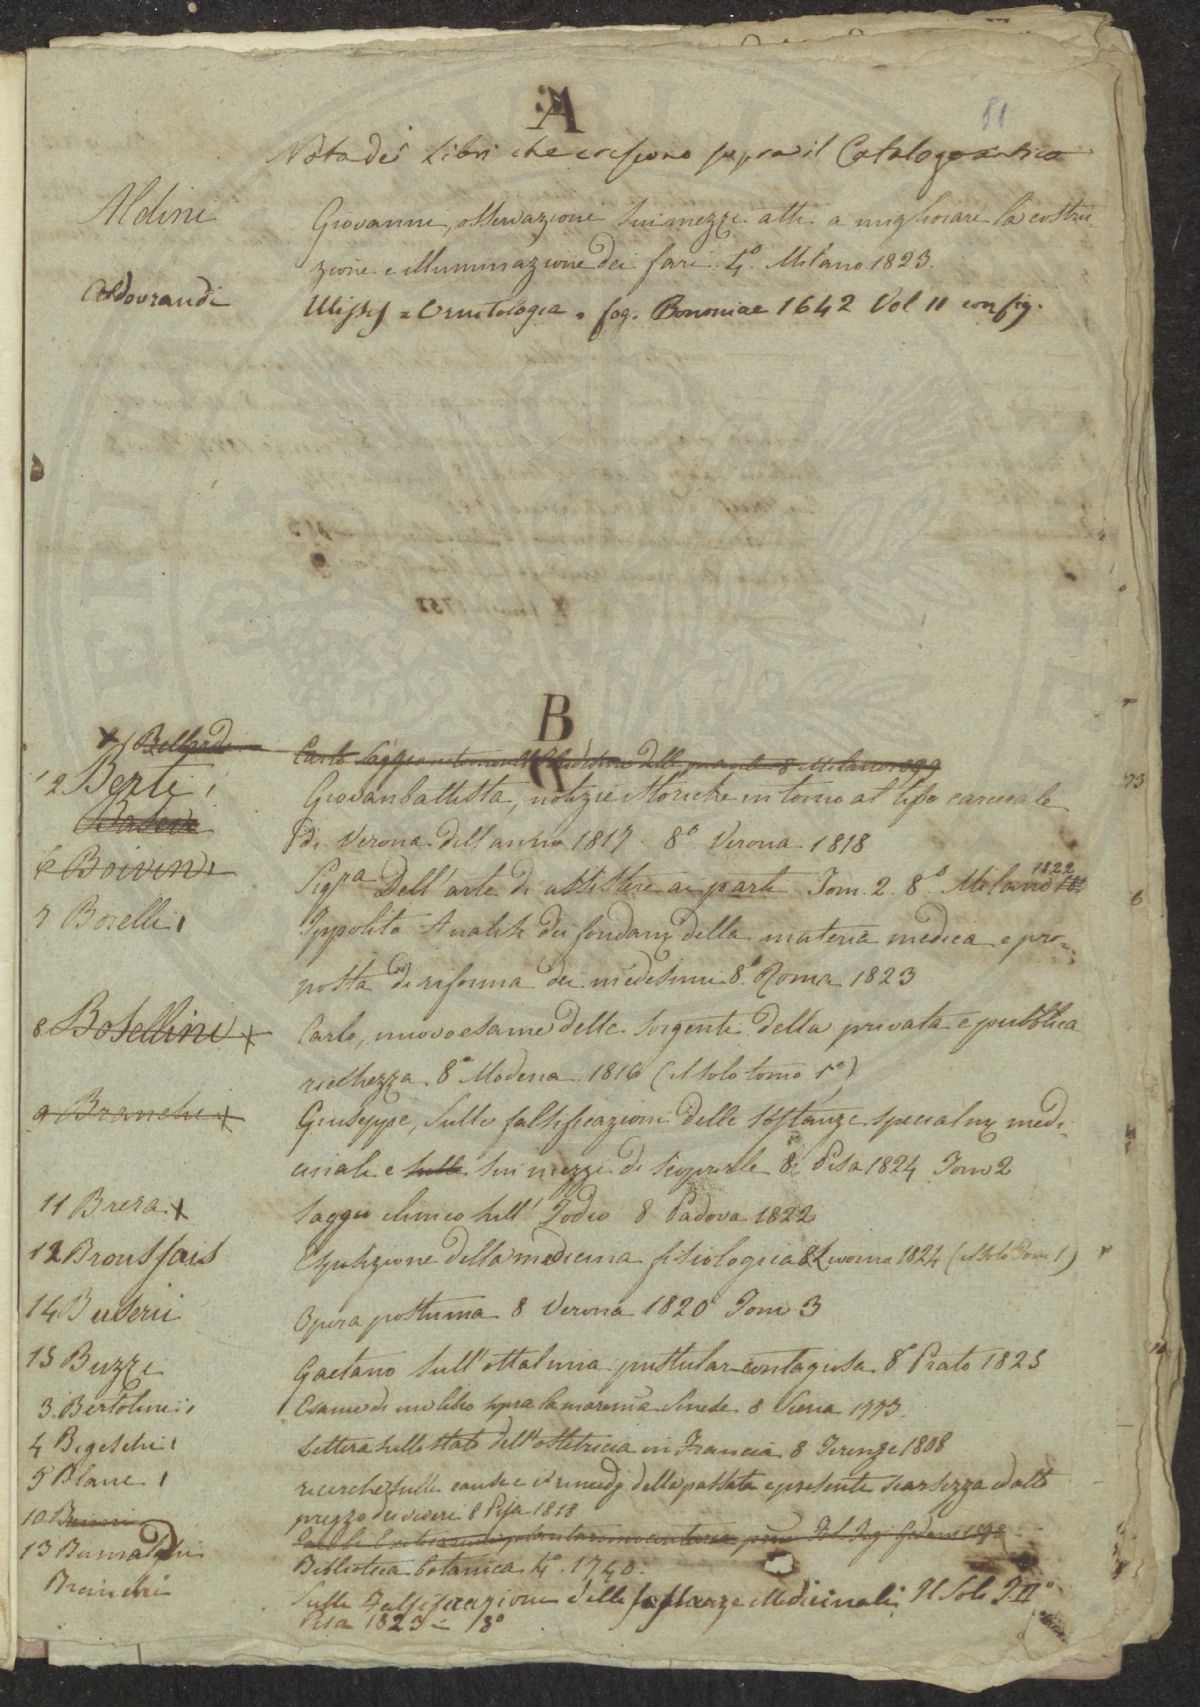 A
81
Nota dei Libri che esistono sopra il Catalogo antico
Aldini Giovanni, osservazione sui mezzi atti a migliorare la costru-
zione e illuminazione dei fari. 4º. Milano 1823.
Aldovrandi Ulissis = Ornitologia. fog. Bononiae 1642 Vol II con fig.
B
x 1 Bellardi Carlo Saggio 8 Milano
2 Berti, Giovanbattista, notizie storiche intorno al tifo carcerale
di Verona dell'anno 1817. 8º. Verona 1818
6 Boivin, Sigra Dell'arte di assistere ai parti Tom. 2. 8º. Milano 1822
7 Borelli, Ippolito Analisi dei fondam. della materia medica e pro-
posta di riforma dei medesimi 8º. Roma 1823
8 Bosellini x Carlo, nuovo esame delle sorgenti della privata e pubblica
ricchezza. 8º Modena. 1816 (il solo tomo 1º)
9 Branchi x Giuseppe, Sulle falsificazioni delle sostanze specialm. medi-
cinali e sulle sui mezzi di scoprirle 8º. Pisa 1824 Tom 2
11 Brera x Saggio clinico sull' Iodio 8 Padova 1822
12 Broussais Esposizione della medicina fisiologica 8 Livorno 1824 (il solo Tom 1)
14 Buserii Opera postuma 8 Verona 1820 Tom 3
15 Buzzi Gaetano sull'ottalmia pustulare-contagiosa 8º Prato 1825
3. Bertolini, Esame di un libro sopra la maremma Sinese 8 Siena 1773.
4 Bigeschi, Lettera sullo stato dell'ostetricia in Francia 8 Firenze 1808
5 Blanc, ricerche sulle cause e i rimedj della passata e presente scarsezza ed alto
prezzo dei viveri 8 Pisa 1818
10
13 Bumaldi Biblioteca botanica 4º. 1740.
Branchi Sulle Falsificazione delle sostanze Medicinali Il Solo T. IIº
Pisa 1823 = 8º
73
6